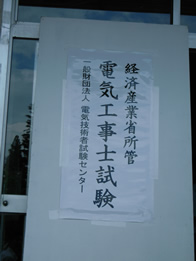 経済産業省所管
電気工事士試験
一般財団法人 電気技術者試験センター